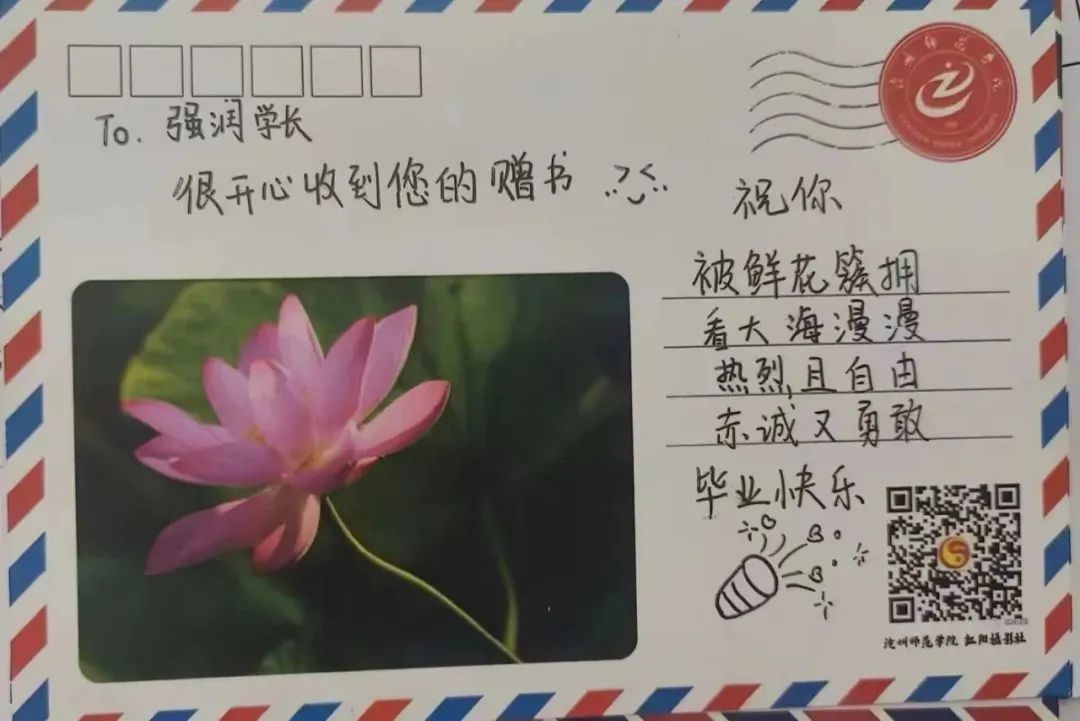 沧州师范学院
To. 强润学长
很开心收到您的赠书
祝你
被鲜花簇拥
看大海漫漫
热烈且自由
赤诚又勇敢
毕业快乐
沧州师范学院 红阳摄影社